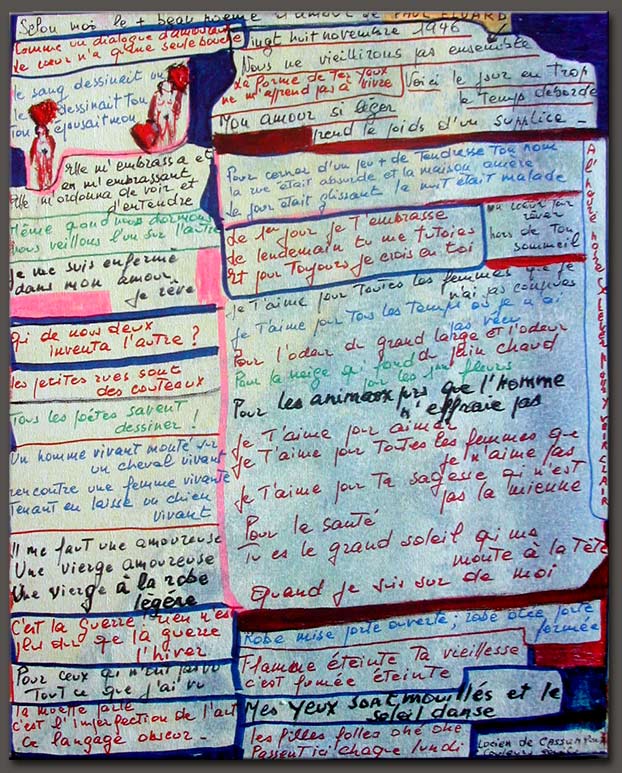 Selon moi le + beau poème d'amour de PAUL ELUARD
Comme un dialogue d'amoureux
Le cœur n'a qu'une seule bouche
le sang dessinait un
le dessinait ton
épousait mon
Elle m'embrassa et
en m'embrassant
Elle m'ordonna de voir et
d'entendre
Même quand nous dormons
nous veillons l'un sur l'autre
Je me suis enfermé
dans mon amour
je rêve
qi de nous deux
inventa l'autre ?
les petites rues sont
des couteaux
Tous les poètes savent
dessiner !
Un homme vivant monté sur
un cheval vivant
rencontre une femme vivante
Tenant en laisse un chien
vivant
Il me faut une amoureuse
Une vierge amoureuse
Une vierge à la robe
légère
C'est la guerre, rien n'est
plus dur qe la guerre
l'hiver
Pour ceux qi n'ont pas vu
Tout ce que j'ai vu
la muette parle
c'est l'imperfection de l'art
ce langage obscur -
Vingt huit novembre 1946
Nous ne vieillirons pas ensemble
La Forme de Tes Yeux
ne m'apprend pas à vivre
Voici le jour en trop
le temps déborde
Mon amour si léger
prend le poids d'un supplice -
Pour cerner d'un peu + de tendresse ton nom
la rue était absurde et la maison amère
Le jour était glissant la nuit était malade
Le 1er jour je t'embrasse
le lendemain tu me tutoies
Et pour Toujours je crois en toi
un cœur pur
rêver
hors de ton
sommeil
Je T'aime pour Toutes les femmes que je
n'ai pas connues
Je T'aime pour tous les Temps où je n'ai
pas vécu
Pour l'odeur du grand large et l'odeur
du pain chaud
Pour la neige qi fond
pour les 1ères fleurs
Pour les animaux purs que l'homme
n'effraie pas
Je T'aime pour aimer
Je T'aime pour Toutes les femmes que
je n'aime pas
Je T'aime pour Ta sagesse qi n'est
pas la mienne
Pour la santé
Tu es le grand soleil qi me
monte à la Tête
Quand je suis sur de moi
Robe mise porte ouverte; robe ôtée porte
fermée
Flamme éteinte Ta vieillesse
c'est fumée éteinte
Mes Yeux sont mouillés et le
soleil danse
les filles folles ohé ohé
Passent ici chaque lundi
Lucien de Cassan